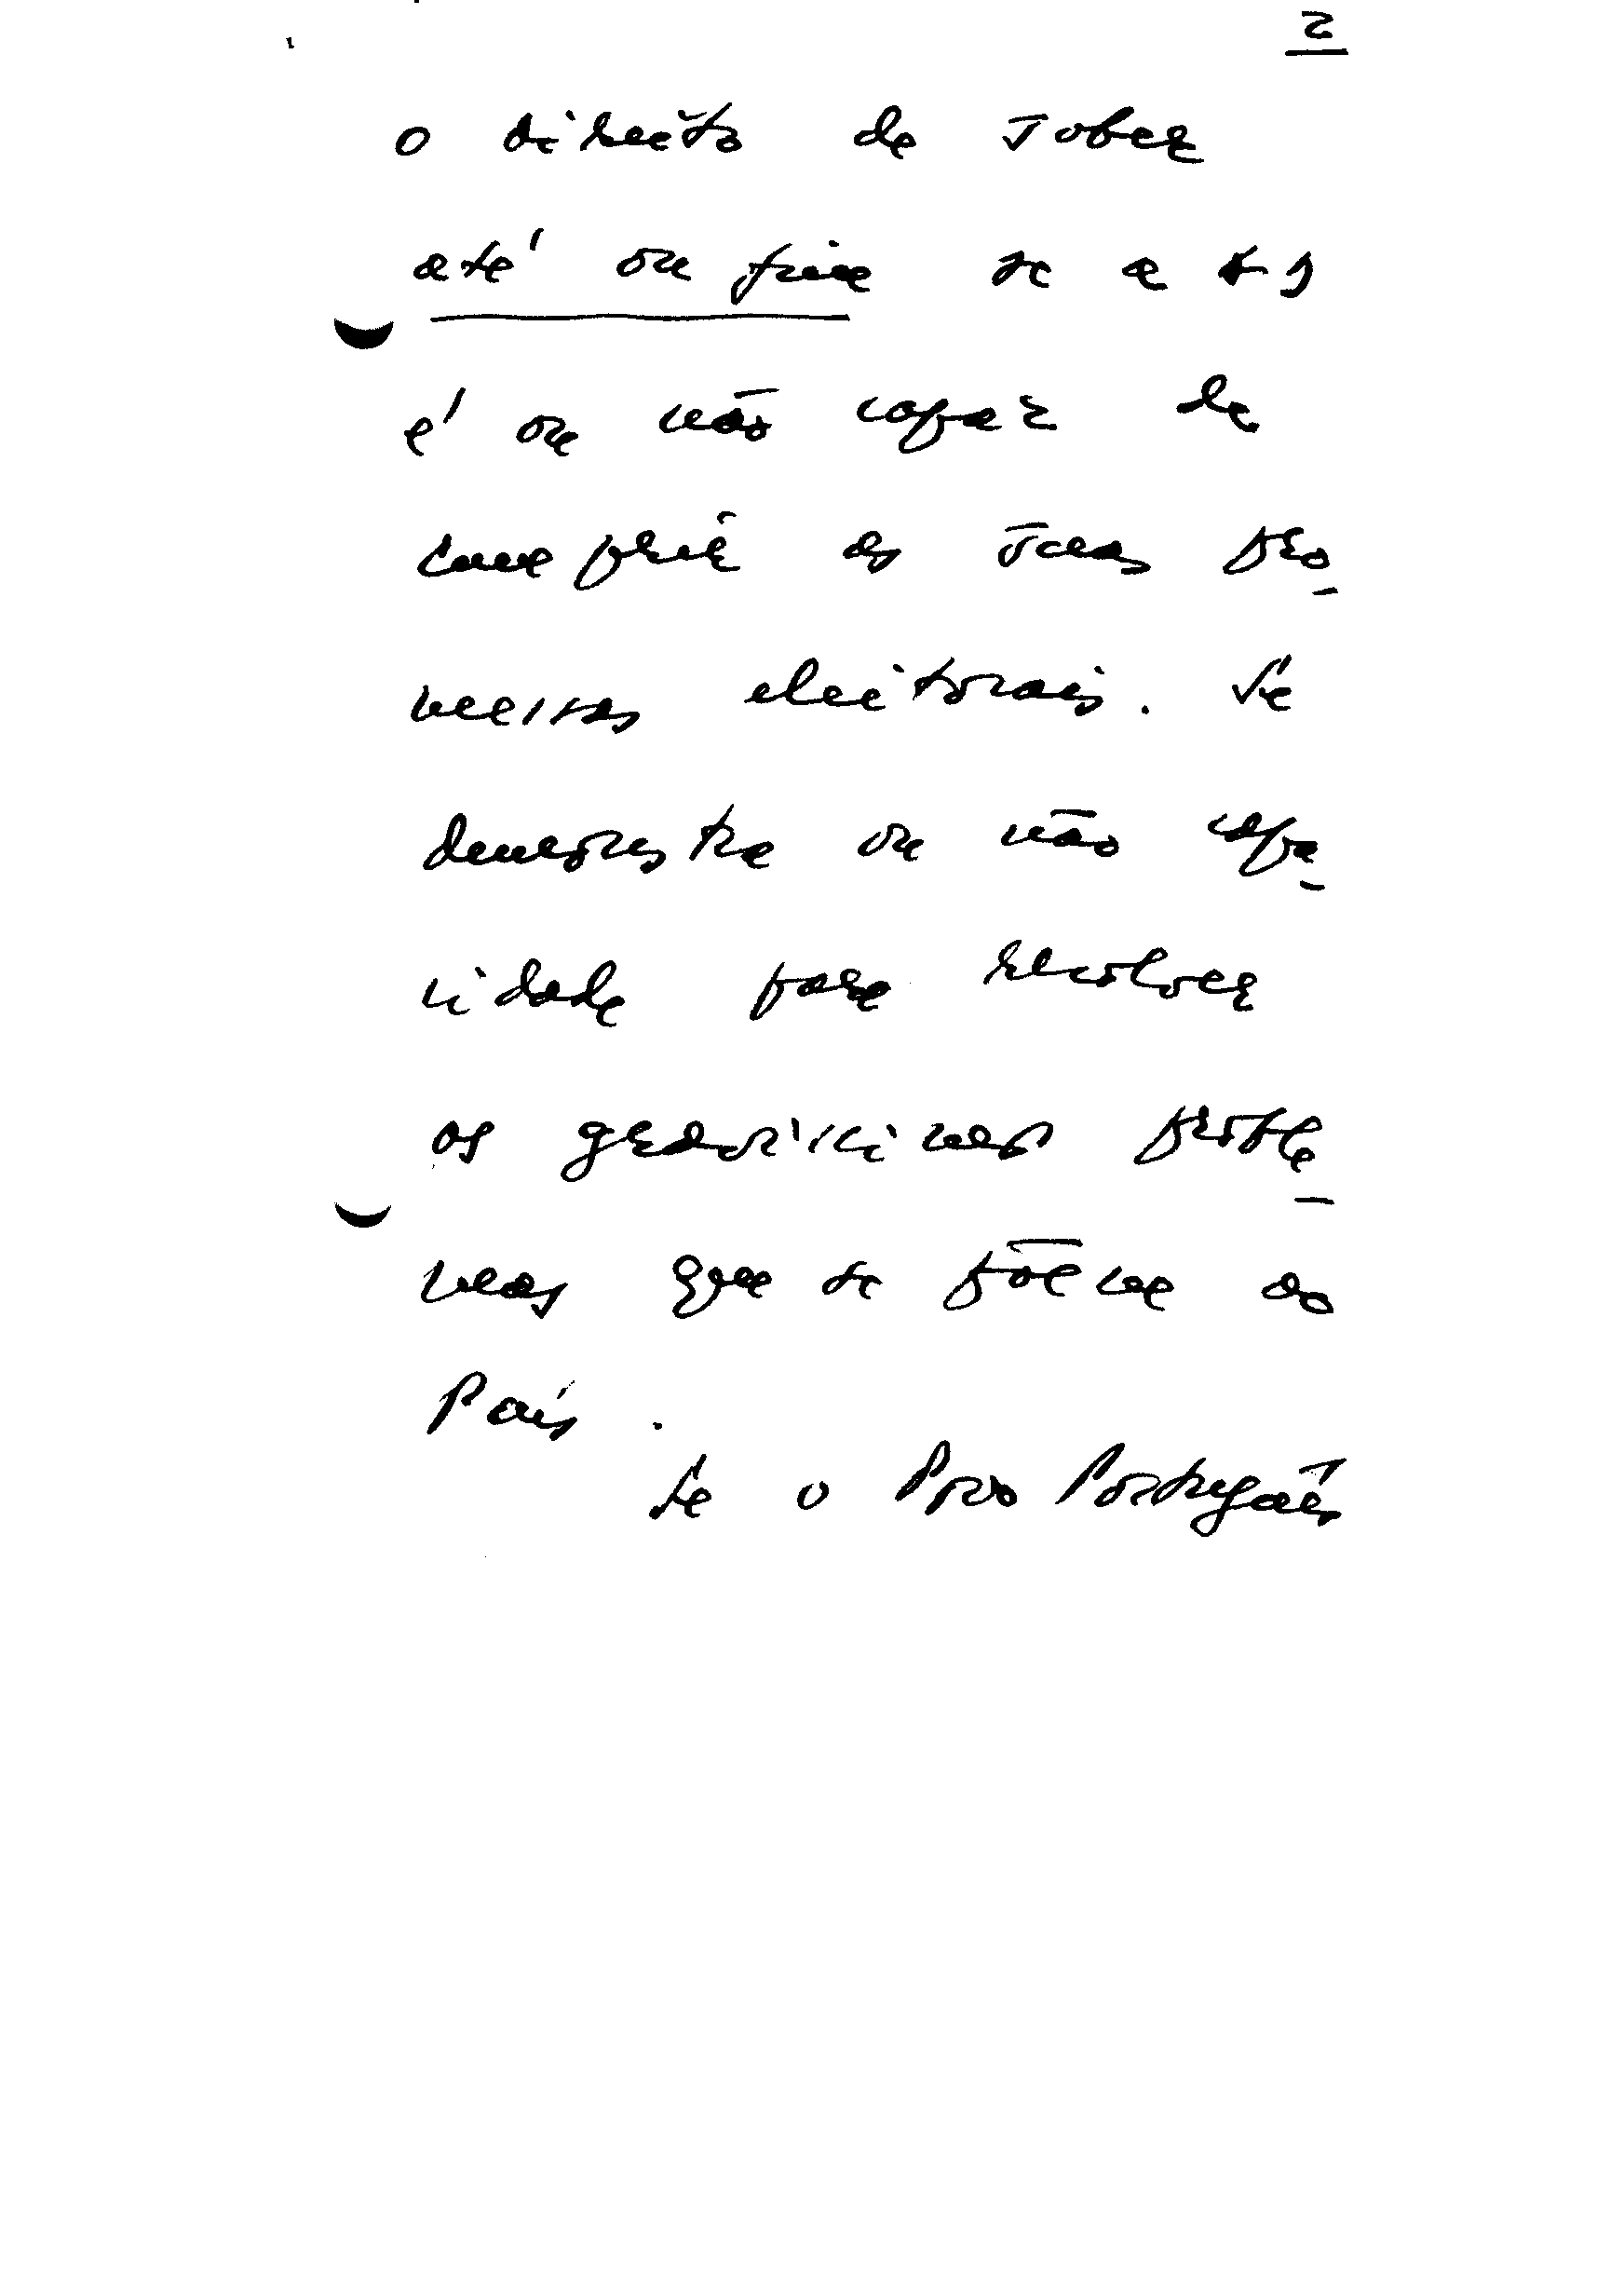 2
o direito de saber
até ao fim se a AD
é ou não capaz de
cumprir as suas pro-
messas eleitorais. Se
demonstra ou não capa-
cidade para resolver
os gravíssimos proble-
mas que se põem ao
País.
Se o Povo Português